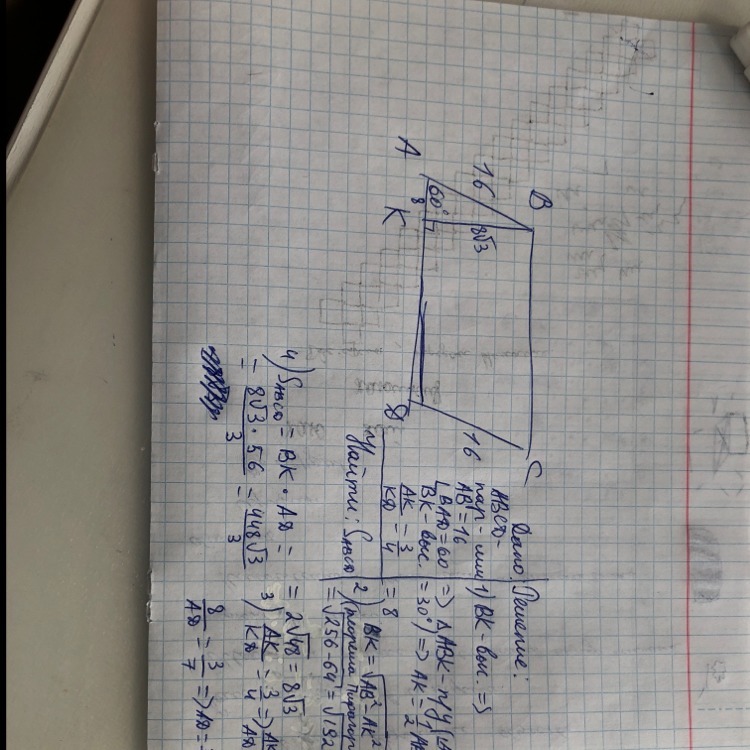 B
16
C
16
8√3
60°
8
A
K
D
Дано:
ABCD-
пар-мм
AB=16
∠BAD=60
BK-выс.
AK/KD = 3/4
Найти: S ABCD
Решение:
1) BK-выс. =>
=> △ABK-п/у (∠
=30°) => AK = 1/2 AB
= 8
2) BK = √AB²-AK²
(теорема Пифагор
= √256-64 = √192
= 2√48 = 8√3
3) AK/KD = 3/4 => AK/AD
8/AD = 3/7 => AD=
4) S ABCD = BK · AD =
= 8√3·56/3 = 448√3/3